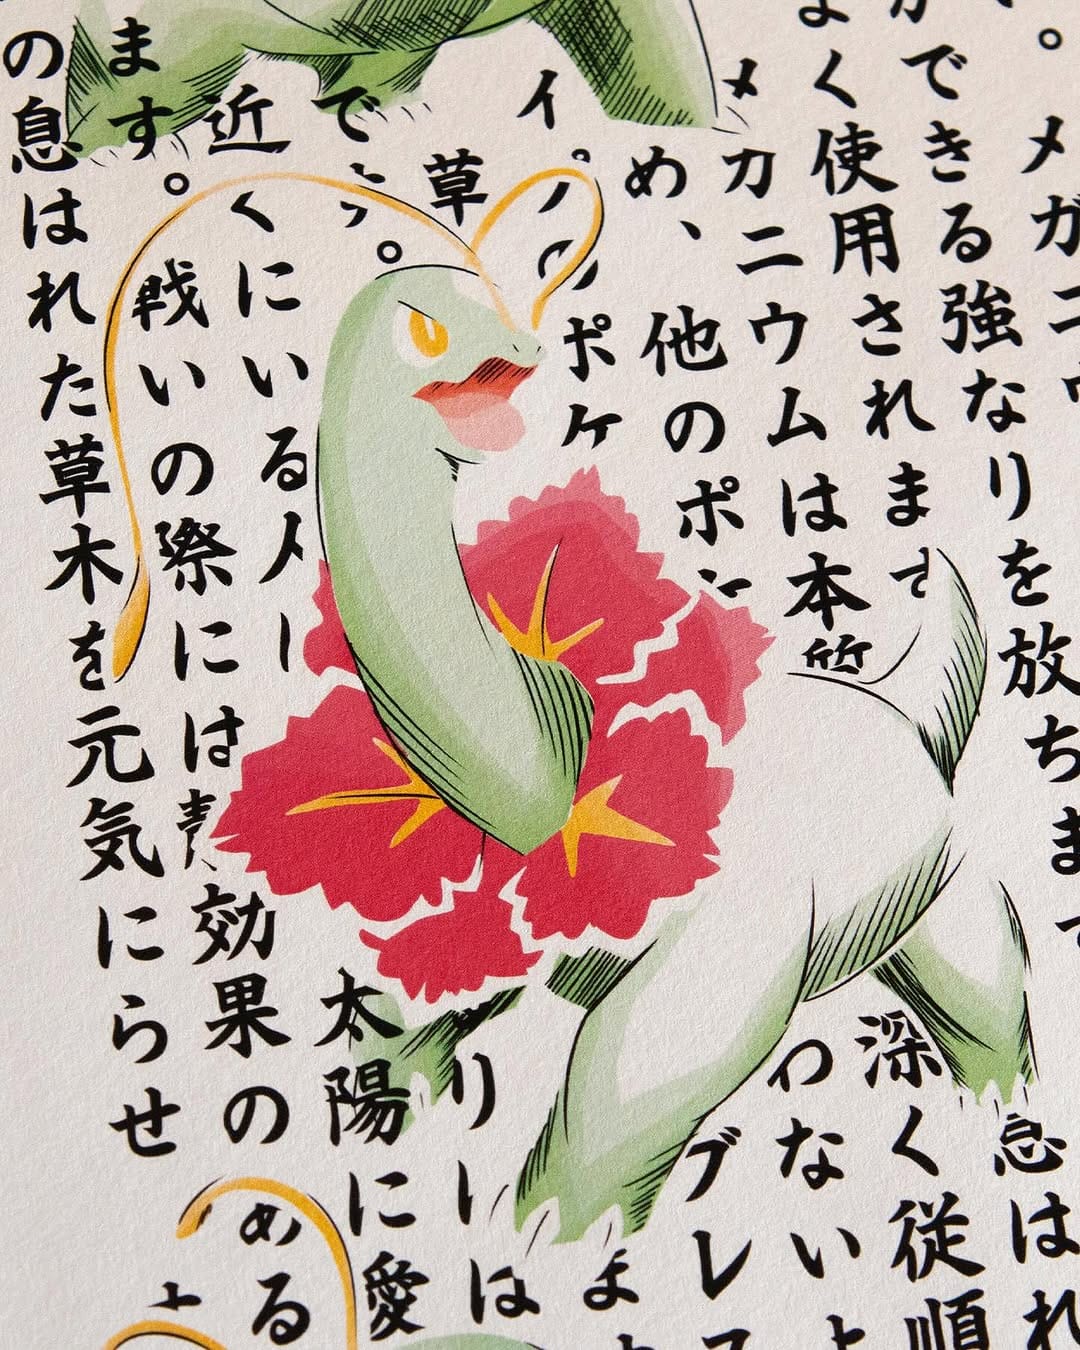 。メガニウ
ができる強なりを放ちます
よく使用されます
息はれ
メガニウムは本
深く従順
め、他のポケ
わないよ
イプのポケ
ブレ
草
よ
で
。
リーは
近くにいるメー
太陽に愛
ます。戦いの際には
効果の
ある
の息はれた草木を元気にらせ